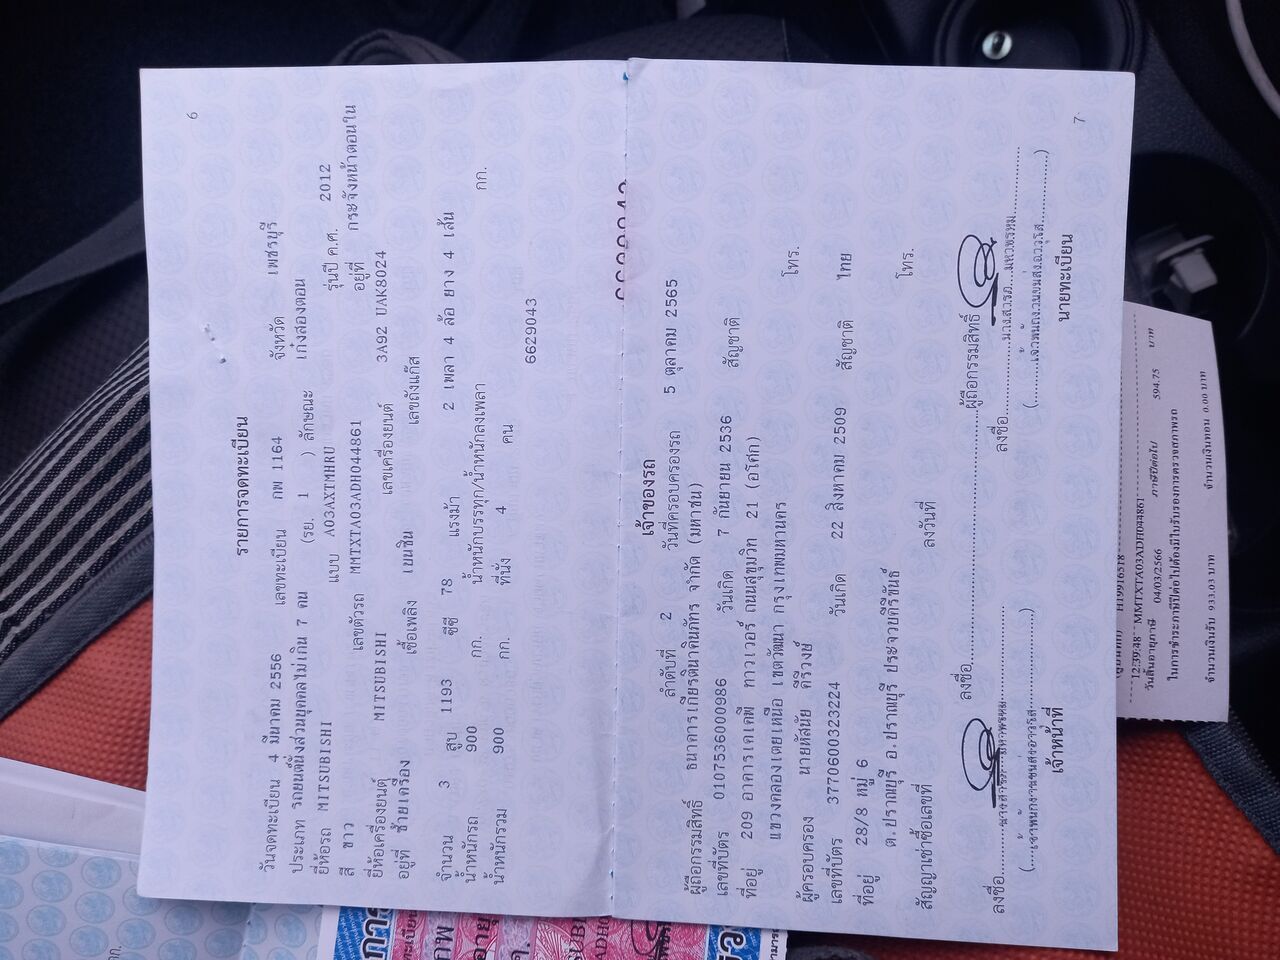 6
รายการจดทะเบียน
วันจดทะเบียน 4 มีนาคม 2556 เลขทะเบียน กพ 1164 จังหวัด เพชรบุรี
ประเภท รถยนต์นั่งส่วนบุคคลไม่เกิน 7 คน (รย. 1 ) ลักษณะ เก๋งสองตอน
ยี่ห้อรถ MITSUBISHI แบบ A03AXTMHRU รุ่นปี ค.ศ. 2012
สี ขาว เลขตัวรถ MMTXTA03ADH044861 อยู่ที่ กระจังหน้าตอนใน
ยี่ห้อเครื่องยนต์ MITSUBISHI เลขเครื่องยนต์ 3A92 UAK8024
อยู่ที่ ซ้ายเครื่อง เชื้อเพลิง เบนซิน เลขถังแก๊ส
จำนวน 3 สูบ 1193 ซีซี 78 แรงม้า 2 เพลา 4 ล้อ ยาง 4 เส้น
น้ำหนักรถ 900 กก. น้ำหนักบรรทุก/น้ำหนักลงเพลา กก.
น้ำหนักรวม 900 กก. ที่นั่ง 4 คน
6629043
เจ้าของรถ
ลำดับที่ 2 วันที่ครอบครองรถ 5 ตุลาคม 2565
ผู้ถือกรรมสิทธิ์ ธนาคารเกียรตินาคินภัทร จำกัด (มหาชน)
เลขที่บัตร 0107536000986 วันเกิด 7 กันยายน 2536 สัญชาติ
ที่อยู่ 209 อาคารเคเคพี ทาวเวอร์ ถนนสุขุมวิท 21 (อโศก)
แขวงคลองเตยเหนือ เขตวัฒนา กรุงเทพมหานคร โทร.
ผู้ครอบครอง นายหัสนัย คีรีวงษ์
เลขที่บัตร 3770600323224 วันเกิด 22 สิงหาคม 2509 สัญชาติ ไทย
ที่อยู่ 28/8 หมู่ 6
ต.ปราณบุรี อ.ปราณบุรี ประจวบคีรีขันธ์ โทร.
สัญญาเช่าซื้อเลขที่ ลงวันที่
ลงชื่อ ผู้ถือกรรมสิทธิ์
ลงชื่อ ลงชื่อ
เจ้าหน้าที่ นายทะเบียน
7
12:39:48 MMTXTA03ADH044861
วันสิ้นอายุภาษี 04/03/2566 ภาษีปีต่อไป 594.75 บาท
ในการชำระภาษีปีต่อไปต้องมีใบรับรองการตรวจสภาพรถ
จำนวนเงินรับ 933.03 บาท จำนวนเงินทอน 0.00 บาท